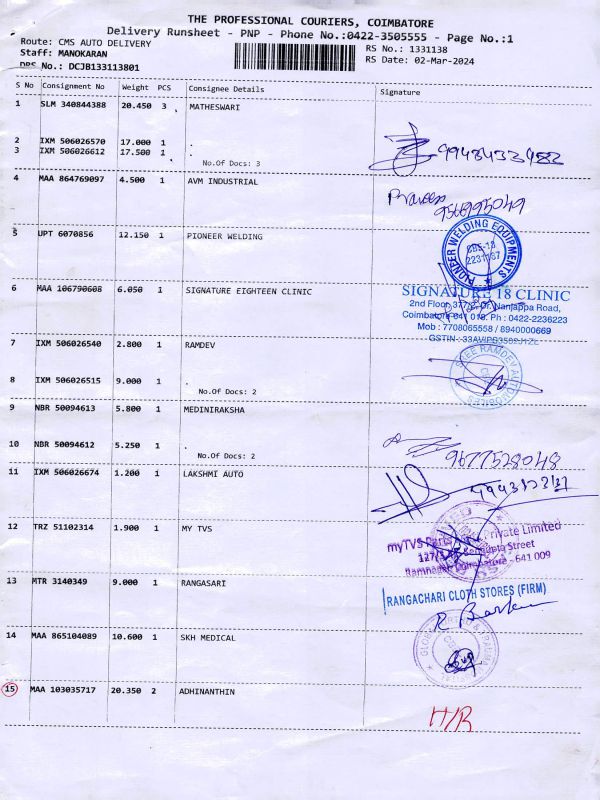 THE PROFESSIONAL COURIERS, COIMBATORE
Delivery Runsheet - PNP - Phone No.:0422-3505555 - Page No.:1
Route: CMS AUTO DELIVERY
Staff: MANOKARAN
DRS No.: DCJB133113801
RS No.: 1331138
RS Date: 02-Mar-2024
S No Consignment No Weight PCS Consignee Details Signature
1 SLM 340844388 20.450 3 MATHESWARI
2 IXM 506026570 17.000 1 .
3 IXM 506026612 17.500 1 .
No.Of Docs: 3
4 MAA 864769097 4.500 1 AVM INDUSTRIAL
9566995049
5 UPT 6070856 12.150 1 PIONEER WELDING
PIONEER WELDING EQUIPMENTS
CBE-18
6 MAA 106790608 6.050 1 SIGNATURE EIGHTEEN CLINIC
SIGNATURE 18 CLINIC
2nd Floor, Nanjappa Road,
Coimbatore-641 018. Ph : 0422-2236223
Mob : 7708065558 / 8940000669
7 IXM 506026540 2.800 1 RAMDEV
SHREE RAMDEV AUTOMOBILES
8 IXM 506026515 9.000 1 .
No.Of Docs: 2
9 NBR 50094613 5.800 1 MEDINIRAKSHA
10 NBR 50094612 5.250 1 .
No.Of Docs: 2
9677528048
11 IXM 506026674 1.200 1 LAKSHMI AUTO
12 TRZ 51102314 1.900 1 MY TVS
myTVS Private Limited
Street
Ramnagar Coimbatore - 641 009
13 MTR 3140349 9.000 1 RANGASARI
RANGACHARI CLOTH STORES (FIRM)
14 MAA 865104089 10.600 1 SKH MEDICAL
15 MAA 103035717 20.350 2 ADHINANTHIN
H/R